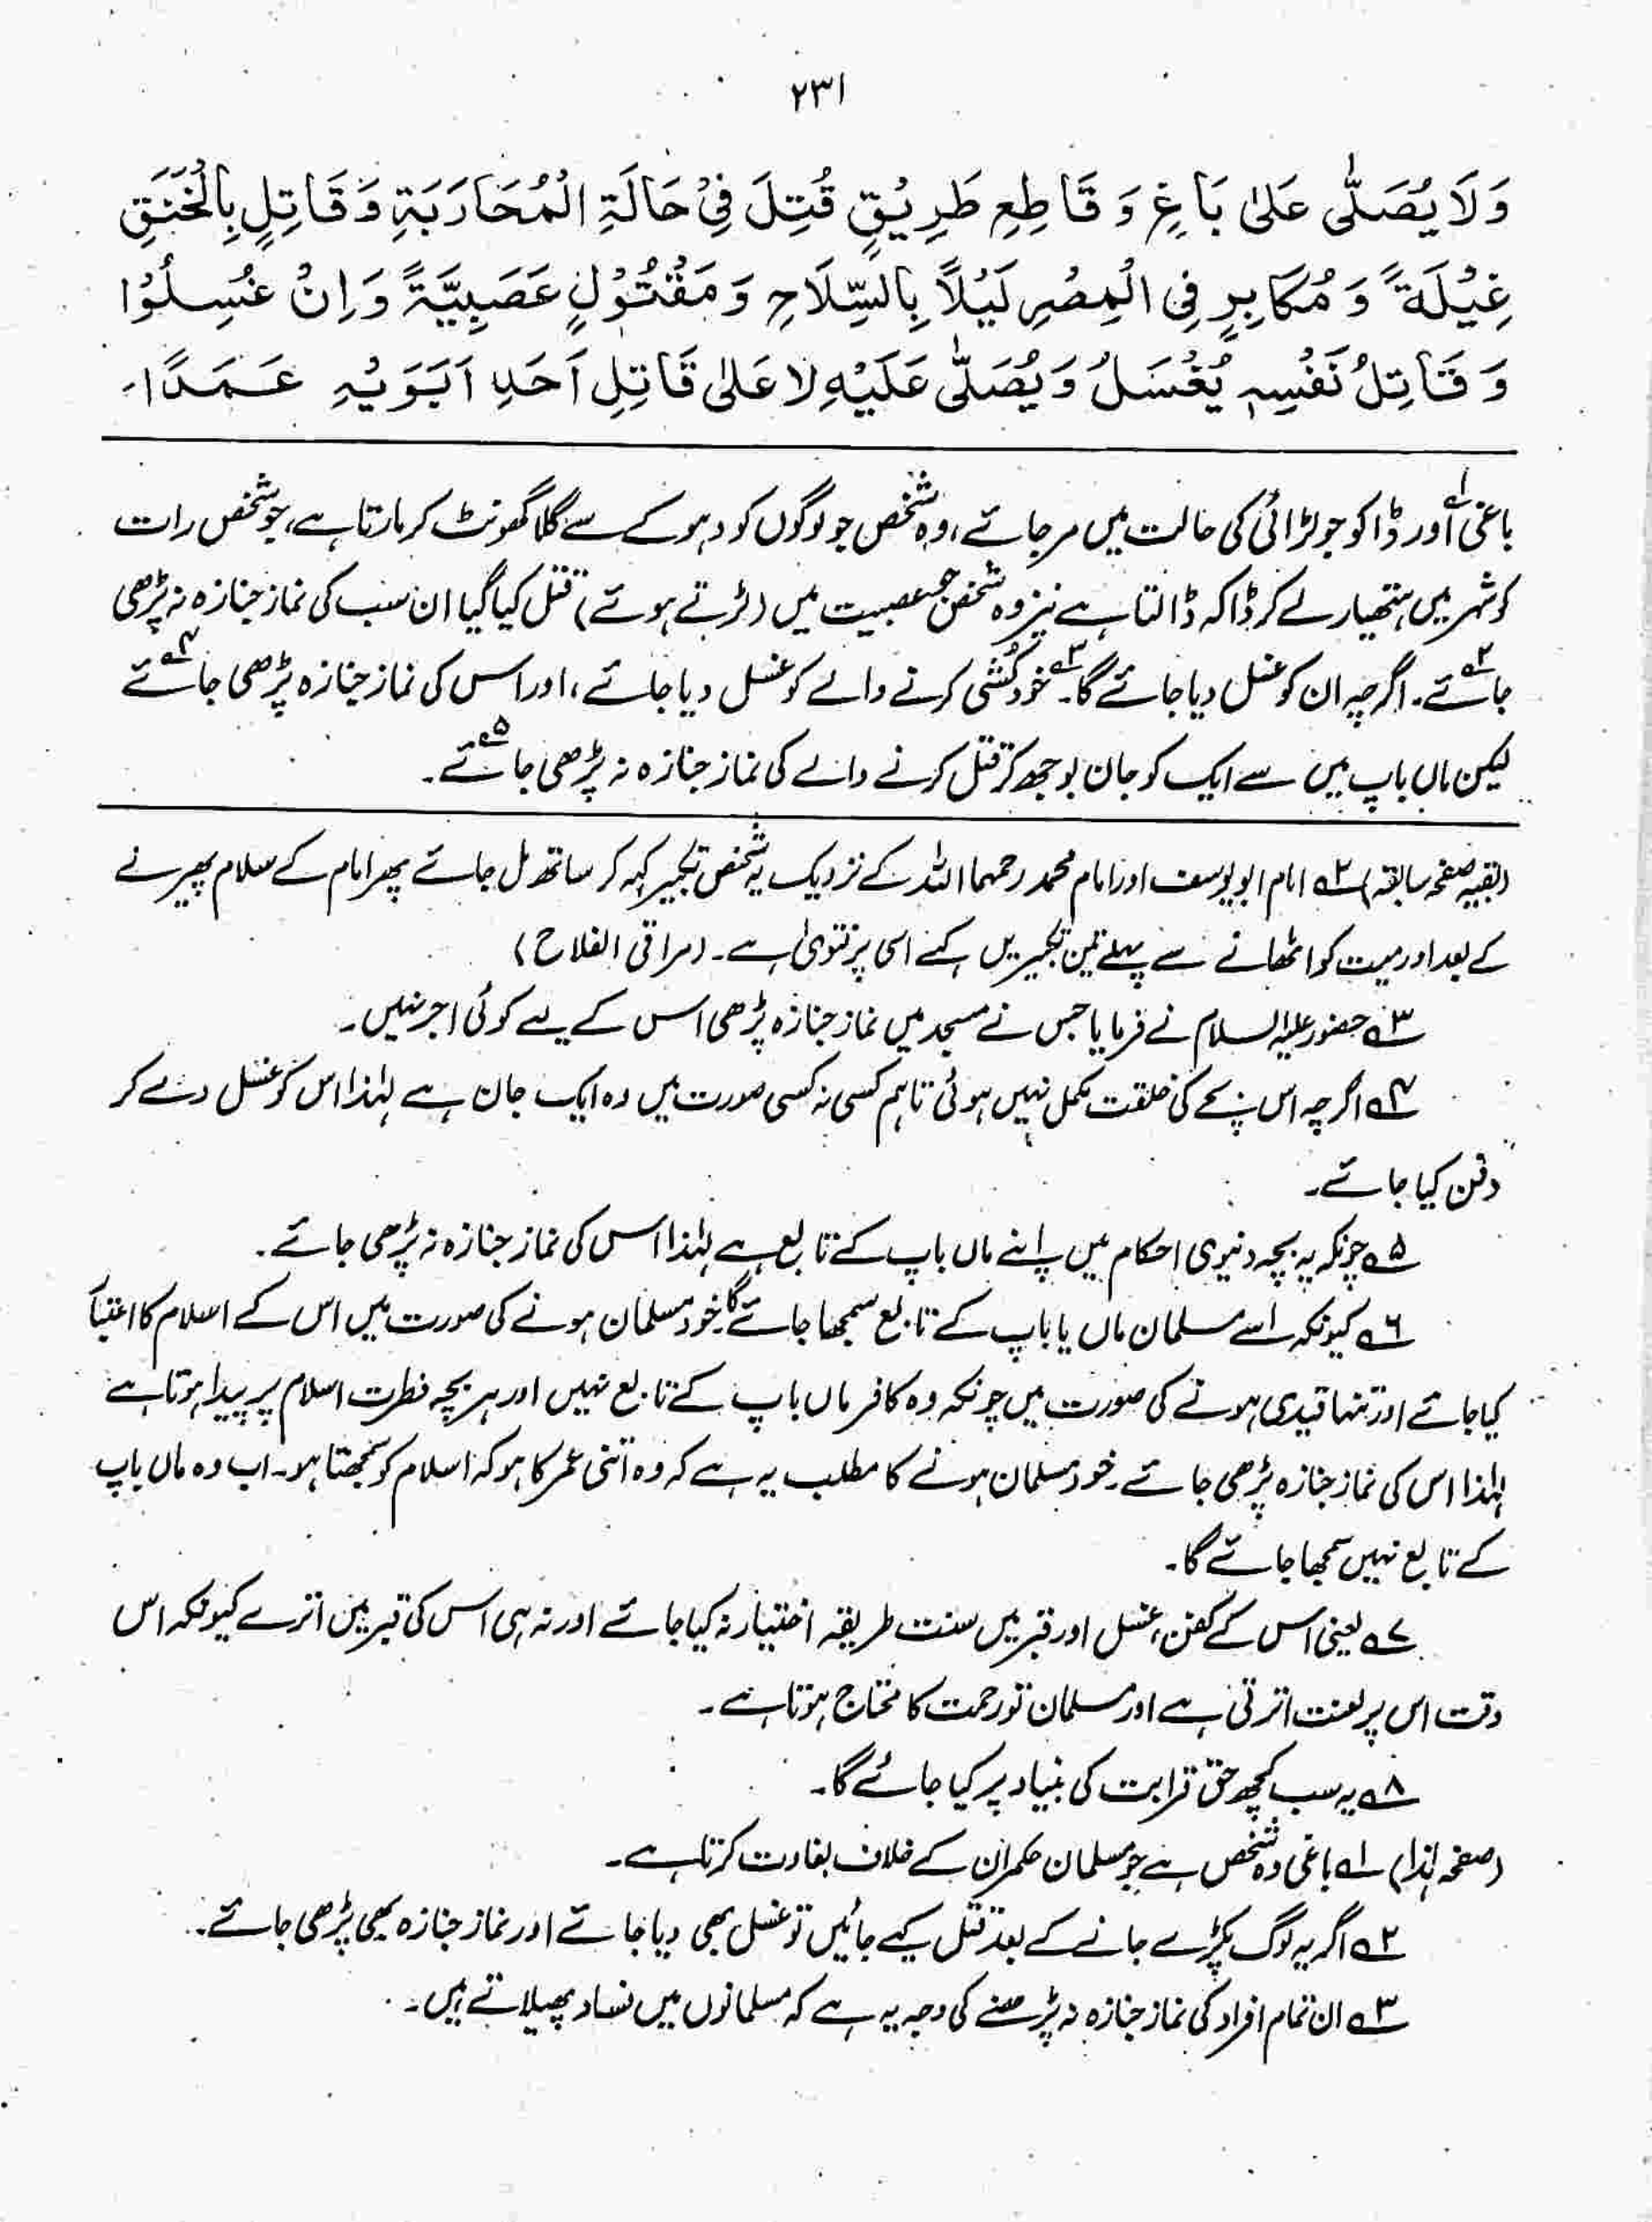 ۲۳۱
وَلَا یُصَلّٰی عَلٰی بَاغٍ وَ قَاطِعِ طَرِیْقٍ قُتِلَ فِیْ حَالَۃِ الْمُحَارَبَۃِ وَ قَاتِلٍ بِالْخَنَقِ
غِیْلَۃً وَ مُکَابِرٍ فِی الْمِصْرِ لَیْلًا بِالسِّلَاحِ وَ مَقْتُوْلٍ عَصَبِیَّۃً وَ اِنْ غُسِلُوْا
وَ قَاتِلُ نَفْسِہٖ یُغْسَلُ وَ یُصَلّٰی عَلَیْہِ لَا عَلٰی قَاتِلِ اَحَدِ اَبَوَیْہِ عَمَدًا۔
باغی۱ اور ڈاکو جو لڑائی کی حالت میں مر جائے، وہ شخص جو لوگوں کو دہوکے سے گلا گھونٹ کر مارتا ہے، جو شخص رات
کو شہر میں ہتھیار لے کر ڈاکہ ڈالتا ہے نیز وہ شخص جو عصبیت میں (لڑتے ہوئے) قتل کیا گیا ان سب کی نماز جنازہ نہ پڑھی
جائے۲۔ اگرچہ ان کو غسل دیا جائے گا۔۳ خودکُشی کرنے والے کو غسل دیا جائے، اور اس کی نماز جنازہ پڑھی جائے۴
لیکن ماں باپ میں سے ایک کو جان بوجھ کر قتل کرنے والے کی نماز جنازہ نہ پڑھی جائے۵۔
(بقیہ صفحہ سابقہ) ۲؎ امام ابو یوسف اور امام محمد رحمہما اللہ کے نزدیک یہ شخص تکبیر کہہ کر ساتھ مل جائے پھر امام کے سلام پھیرنے
کے بعد اور میت کو اٹھانے سے پہلے تین تکبیریں کہے اسی پر فتویٰ ہے۔ (مراقی الفلاح)
۳؎ حضور علیہ السلام نے فرمایا جس نے مسجد میں نماز جنازہ پڑھی اس کے لیے کوئی اجر نہیں۔
۴؎ اگرچہ اس بچے کی خلقت مکمل نہیں ہوئی تاہم کسی نہ کسی صورت میں وہ ایک جان ہے لہٰذا اس کو غسل دے کر
دفن کیا جائے۔
۵؎ چونکہ یہ بچہ دنیوی احکام میں اپنے ماں باپ کے تابع ہے لہٰذا اس کی نماز جنازہ نہ پڑھی جائے۔
۶؎ کیونکہ اسے مسلمان ماں یا باپ کے تابع سمجھا جائے گا۔ خود مسلمان ہونے کی صورت میں اس کے اسلام کا اعتبار
کیا جائے اور تنہا قیدی ہونے کی صورت میں چونکہ وہ کافر ماں باپ کے تابع نہیں اور ہر بچہ فطرت اسلام پر پیدا ہوتا ہے
لہٰذا اس کی نماز جنازہ پڑھی جائے۔ خود مسلمان ہونے کا مطلب یہ ہے کہ وہ اتنی عمر کا ہو کہ اسلام کو سمجھتا ہو۔ اب وہ ماں باپ
کے تابع نہیں سمجھا جائے گا۔
۷؎ یعنی اس کے کفن، غسل اور قبر میں سنت طریقہ اختیار نہ کیا جائے اور نہ ہی اس کی قبر میں اترے کیونکہ اس
وقت اس پر لعنت اترتی ہے اور مسلمان تو رحمت کا محتاج ہوتا ہے۔
۸؎ یہ سب کچھ حق قرابت کی بنیاد پر کیا جائے گا۔
(صفحہ ہٰذا) ۱؎ باغی وہ شخص ہے جو مسلمان حکمران کے خلاف بغاوت کرتا ہے۔
۲؎ اگر یہ لوگ پکڑے جانے کے بعد قتل کیے جائیں تو غسل بھی دیا جائے اور نماز جنازہ بھی پڑھی جائے۔
۳؎ ان تمام افراد کی نماز جنازہ نہ پڑھنے کی وجہ یہ ہے کہ مسلمانوں میں فساد پھیلاتے ہیں۔